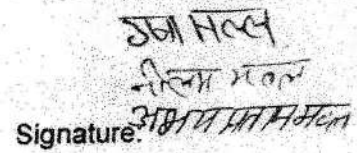 उमा मल्ल
नीलम मल्ल
Signature: अभय प्रताप मल्ल